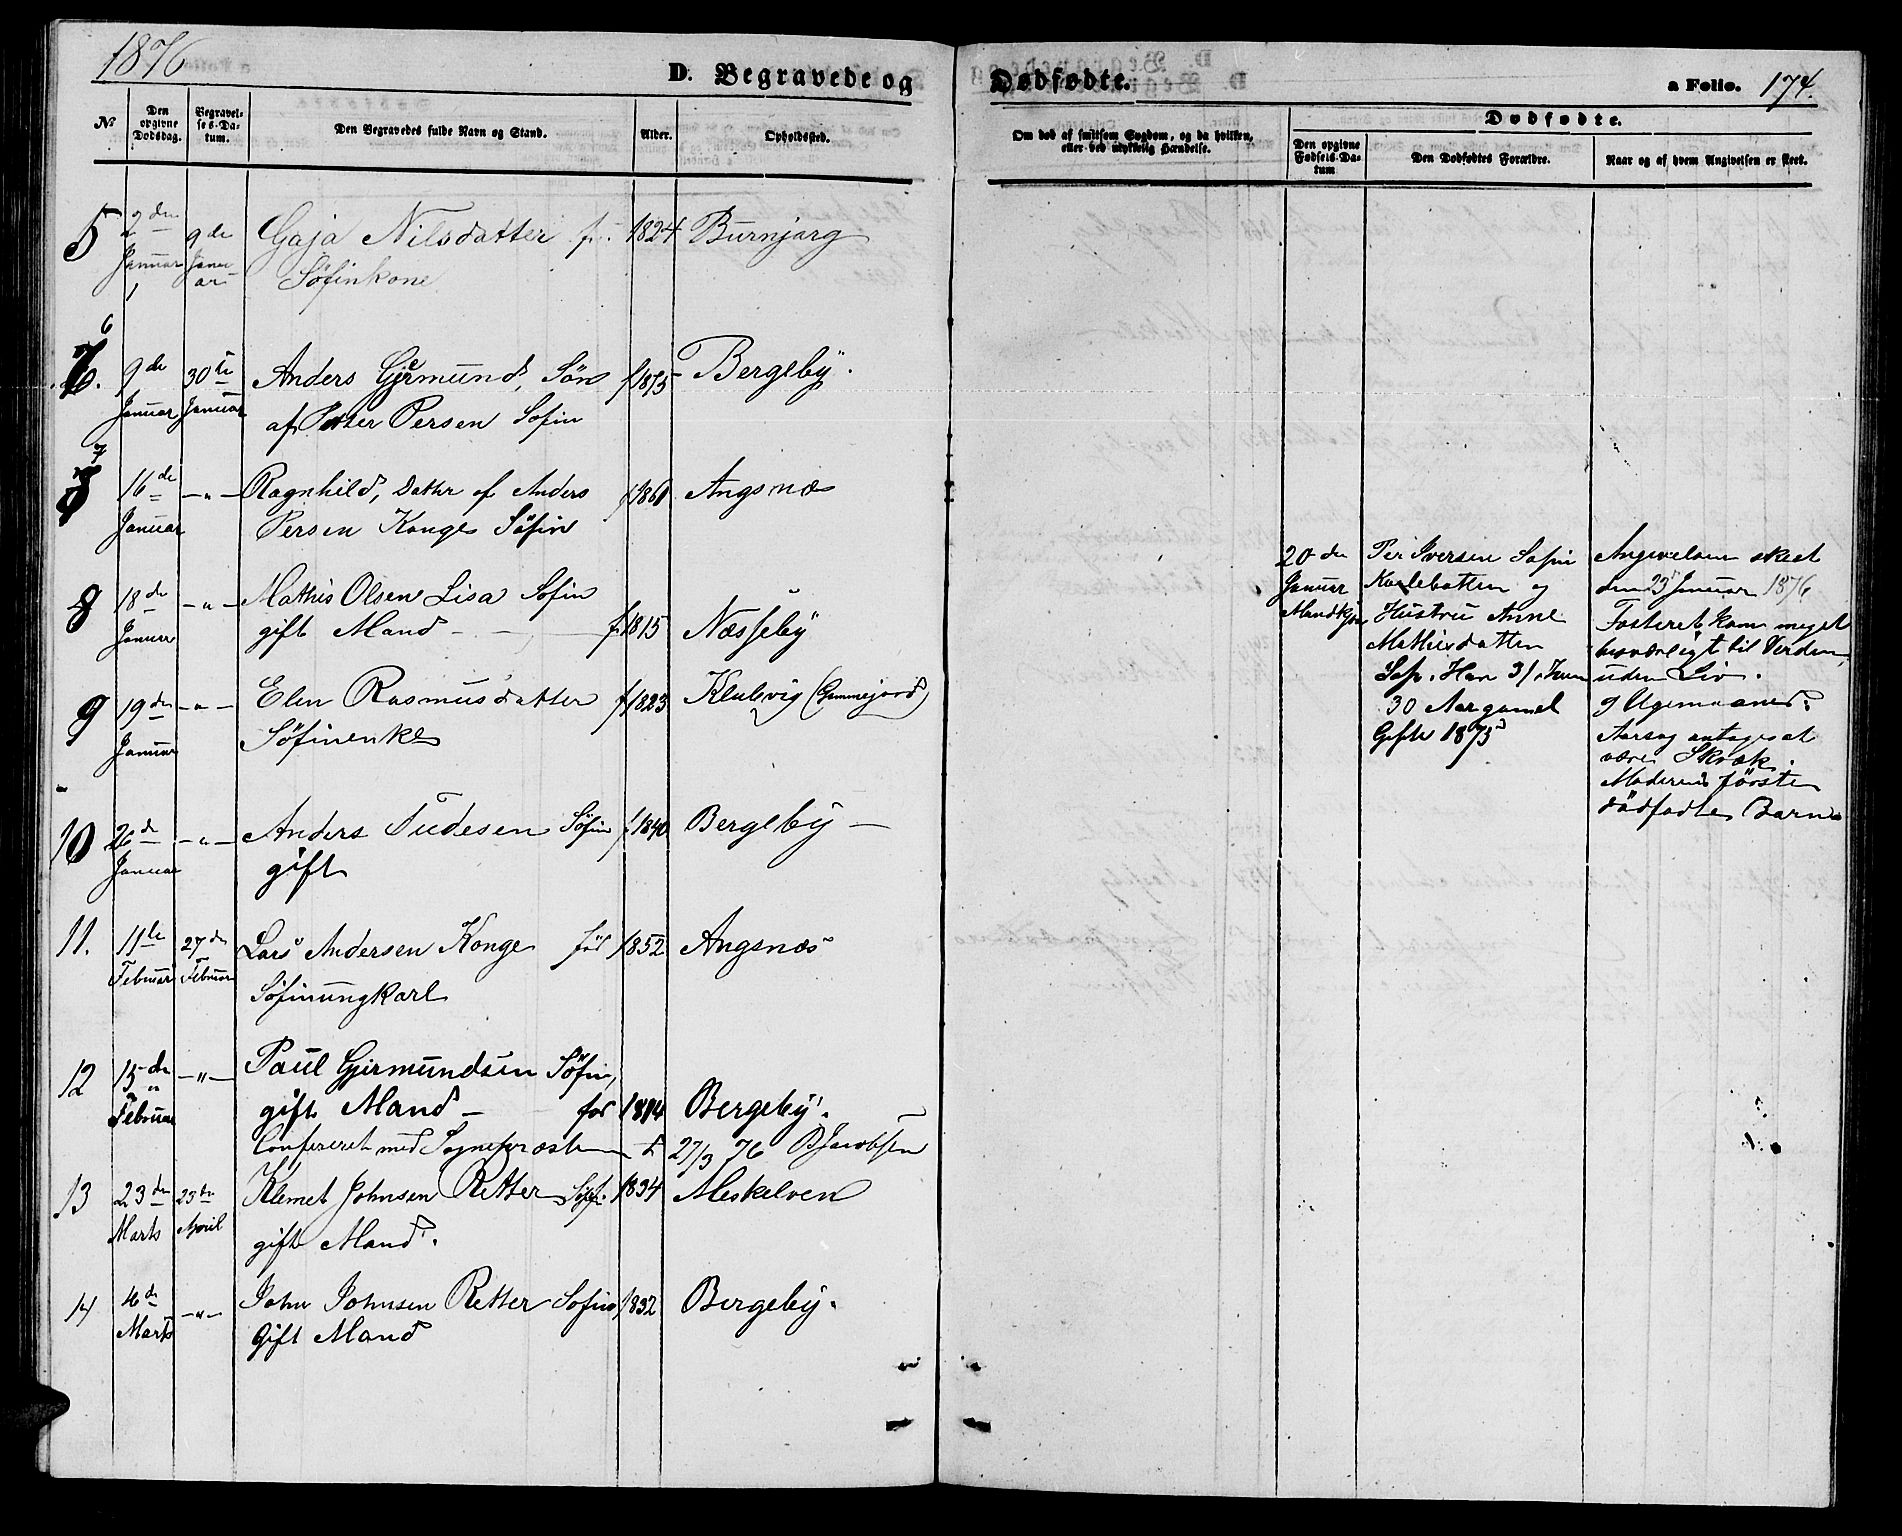 1876
D. Begravede og Dødfødte. a Folio. 174.
No Den opgivne Dødsdag. Begravelses-Datum. Den Begravedes fulde Navn og Stand. Alder. Opholdssted. Om død af smitsom Sygdom, og da hvilken, eller ved ulykkelig Hændelse. Dødfødte.
Den opgivne Fødsels-Datum Den Dødfødtes Forældre. Naar og af hvem Angivelsen er skeet.
5 2den Januar 9de Januar Gaja Nilsdatter f. 1824 Burnjarg
Søfinkone
6 9de Januar 30te Januar Anders Gjermund, Søn f 1875 Bergeby.
af Peter Persen Søfin
7 16de Januar -"- Ragnhild, Datter af Anders f 1861 Angsnæs
Persen Konge Søfin
8 18de Januar -"- Mathis Olsen Lisa Søfin
gift Mand - - f. 1815 Næsseby
9 19de Januar -"- Elen Rasmusdatter f 1823 Klubvig (Gammejord)
Søfinenke
10 26de Januar -"- Anders Tudesen Søfin f 1840 Bergeby -
gift
11. 11te Februar 27de Februar Lars Andersen Konge fød 1852 Angsnæs
Søfinungkarl
12 15de Februar -"- Paul Gjermundsen Søfin,
gift Mand - for 1814 Bergeby.
Confereret med Sognepræsten 27/3 76 BJacobsen
13 23de Marts 23de April Klemet Johnsen Retter Søf. 1834 Meskelven
gift Mand.
14 4de Marts -"- John Johnsen Retter Søfin 1832 Bergeby.
Gift Mand
20de Januar Mandkjøn
Per Iversen Søfin
og
Hustru Anne
Mathisdatter
Søf. Han 31,
30 Aar gamel
Gifte 1875
Angivelsen skeet
den 23 Januar 1876
Fosteret kom meget
besværligt til Verden,
uden Liv.
9 Ugemaaned.
Aarsag antages at
være Skræk.
Moderens første
dødfødte Barn.